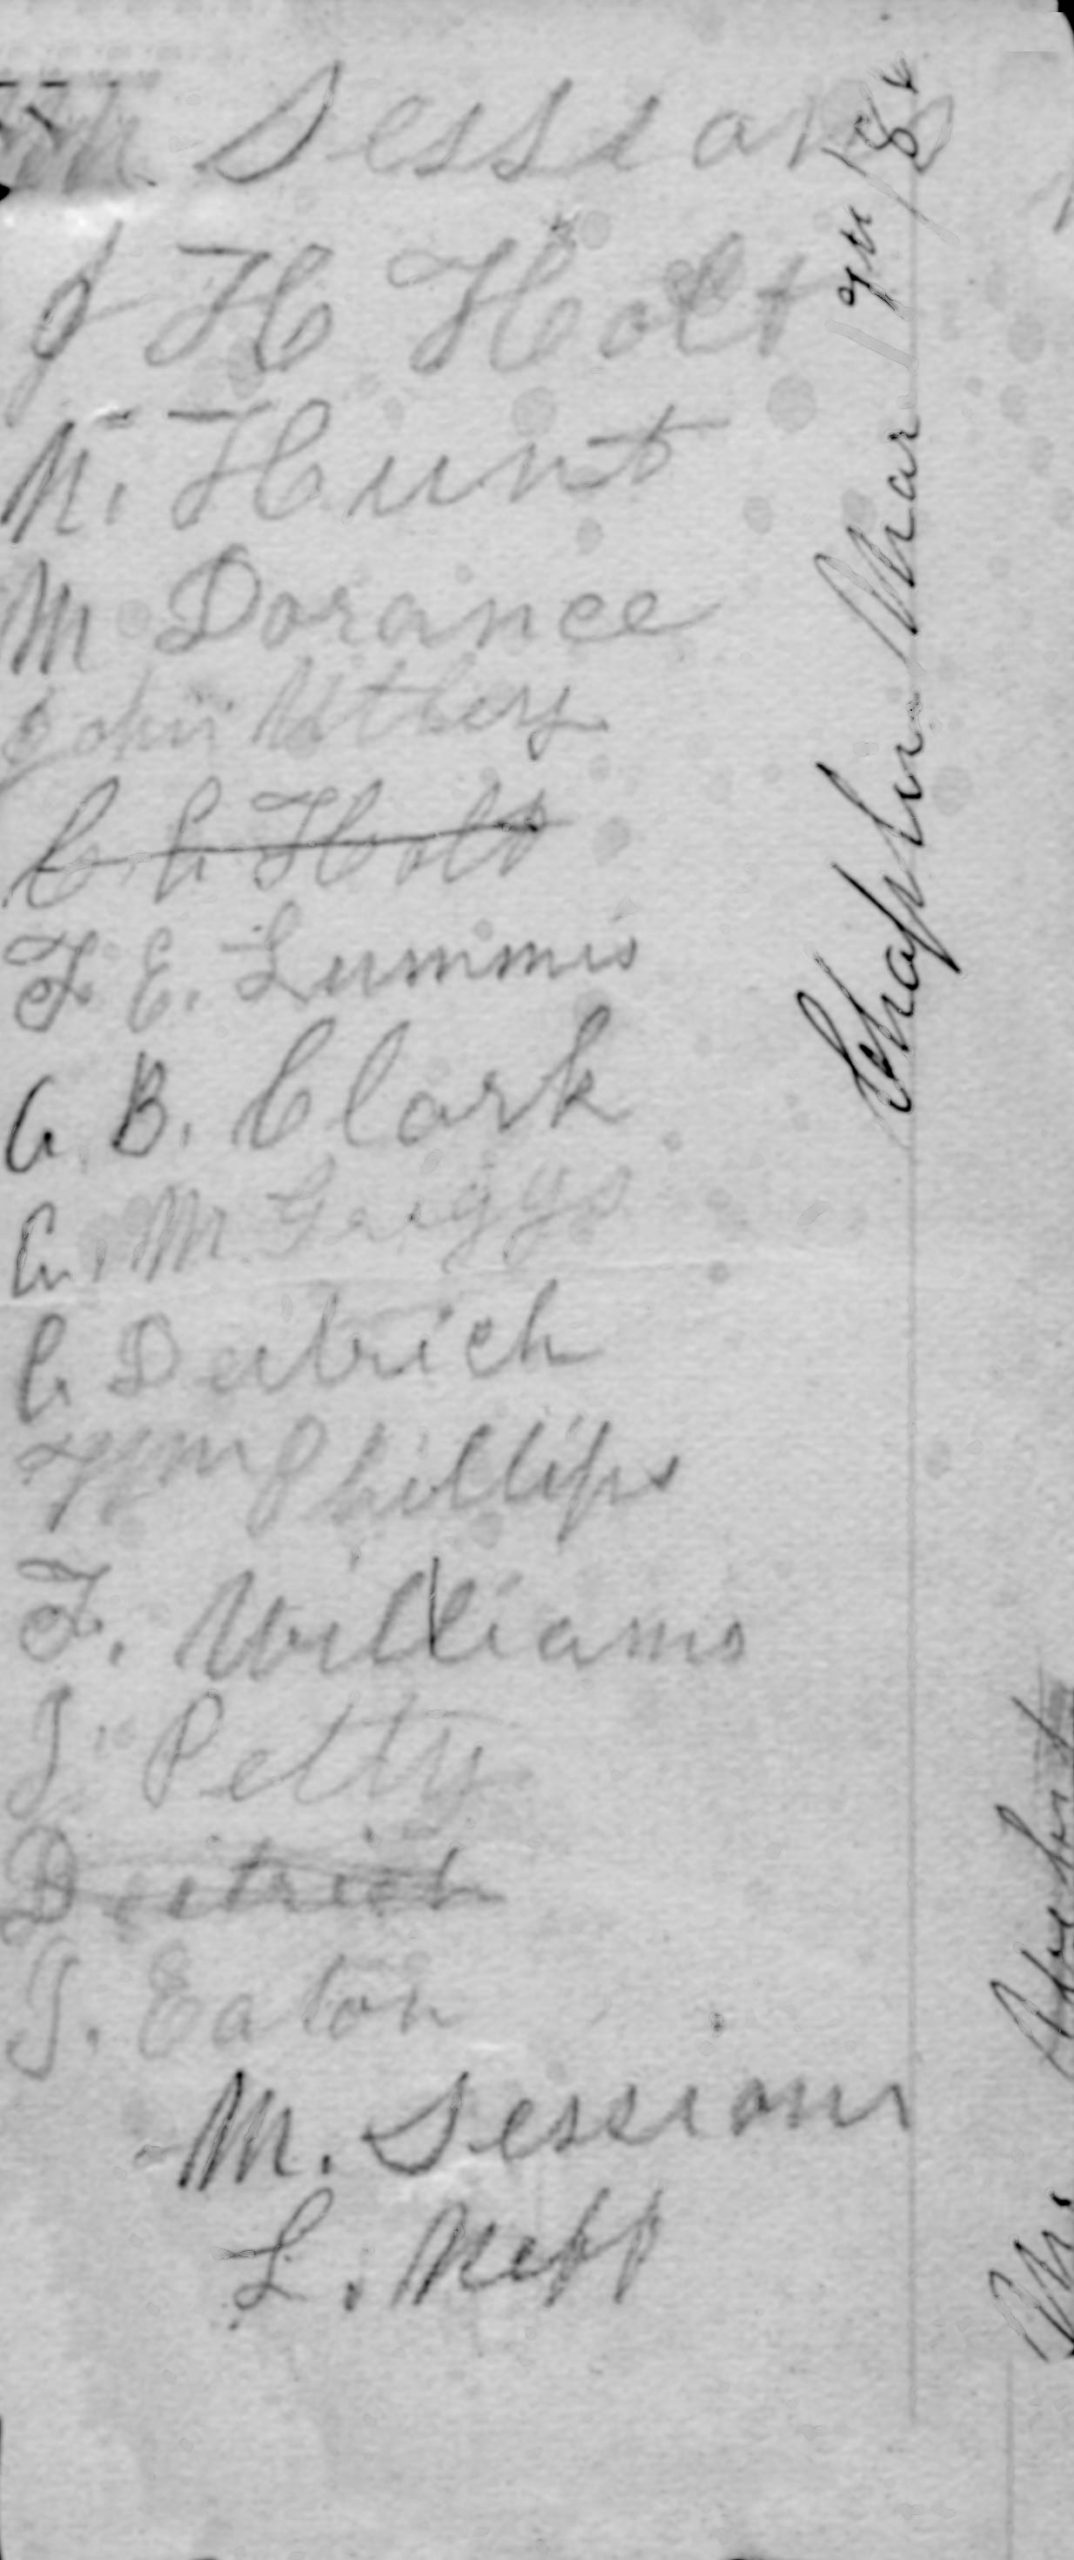 Sessions
J H Holt
N. Hunt
M Dorance
John Utley
C. C. Holt
F. E. Lummis
C. B. Clark
C. M. Griggs
C Deitrich
Wm Phillips
F. Williams
J. Petty
Deitrich
J. Eaton
M. Sessions
L. Neff
Mar